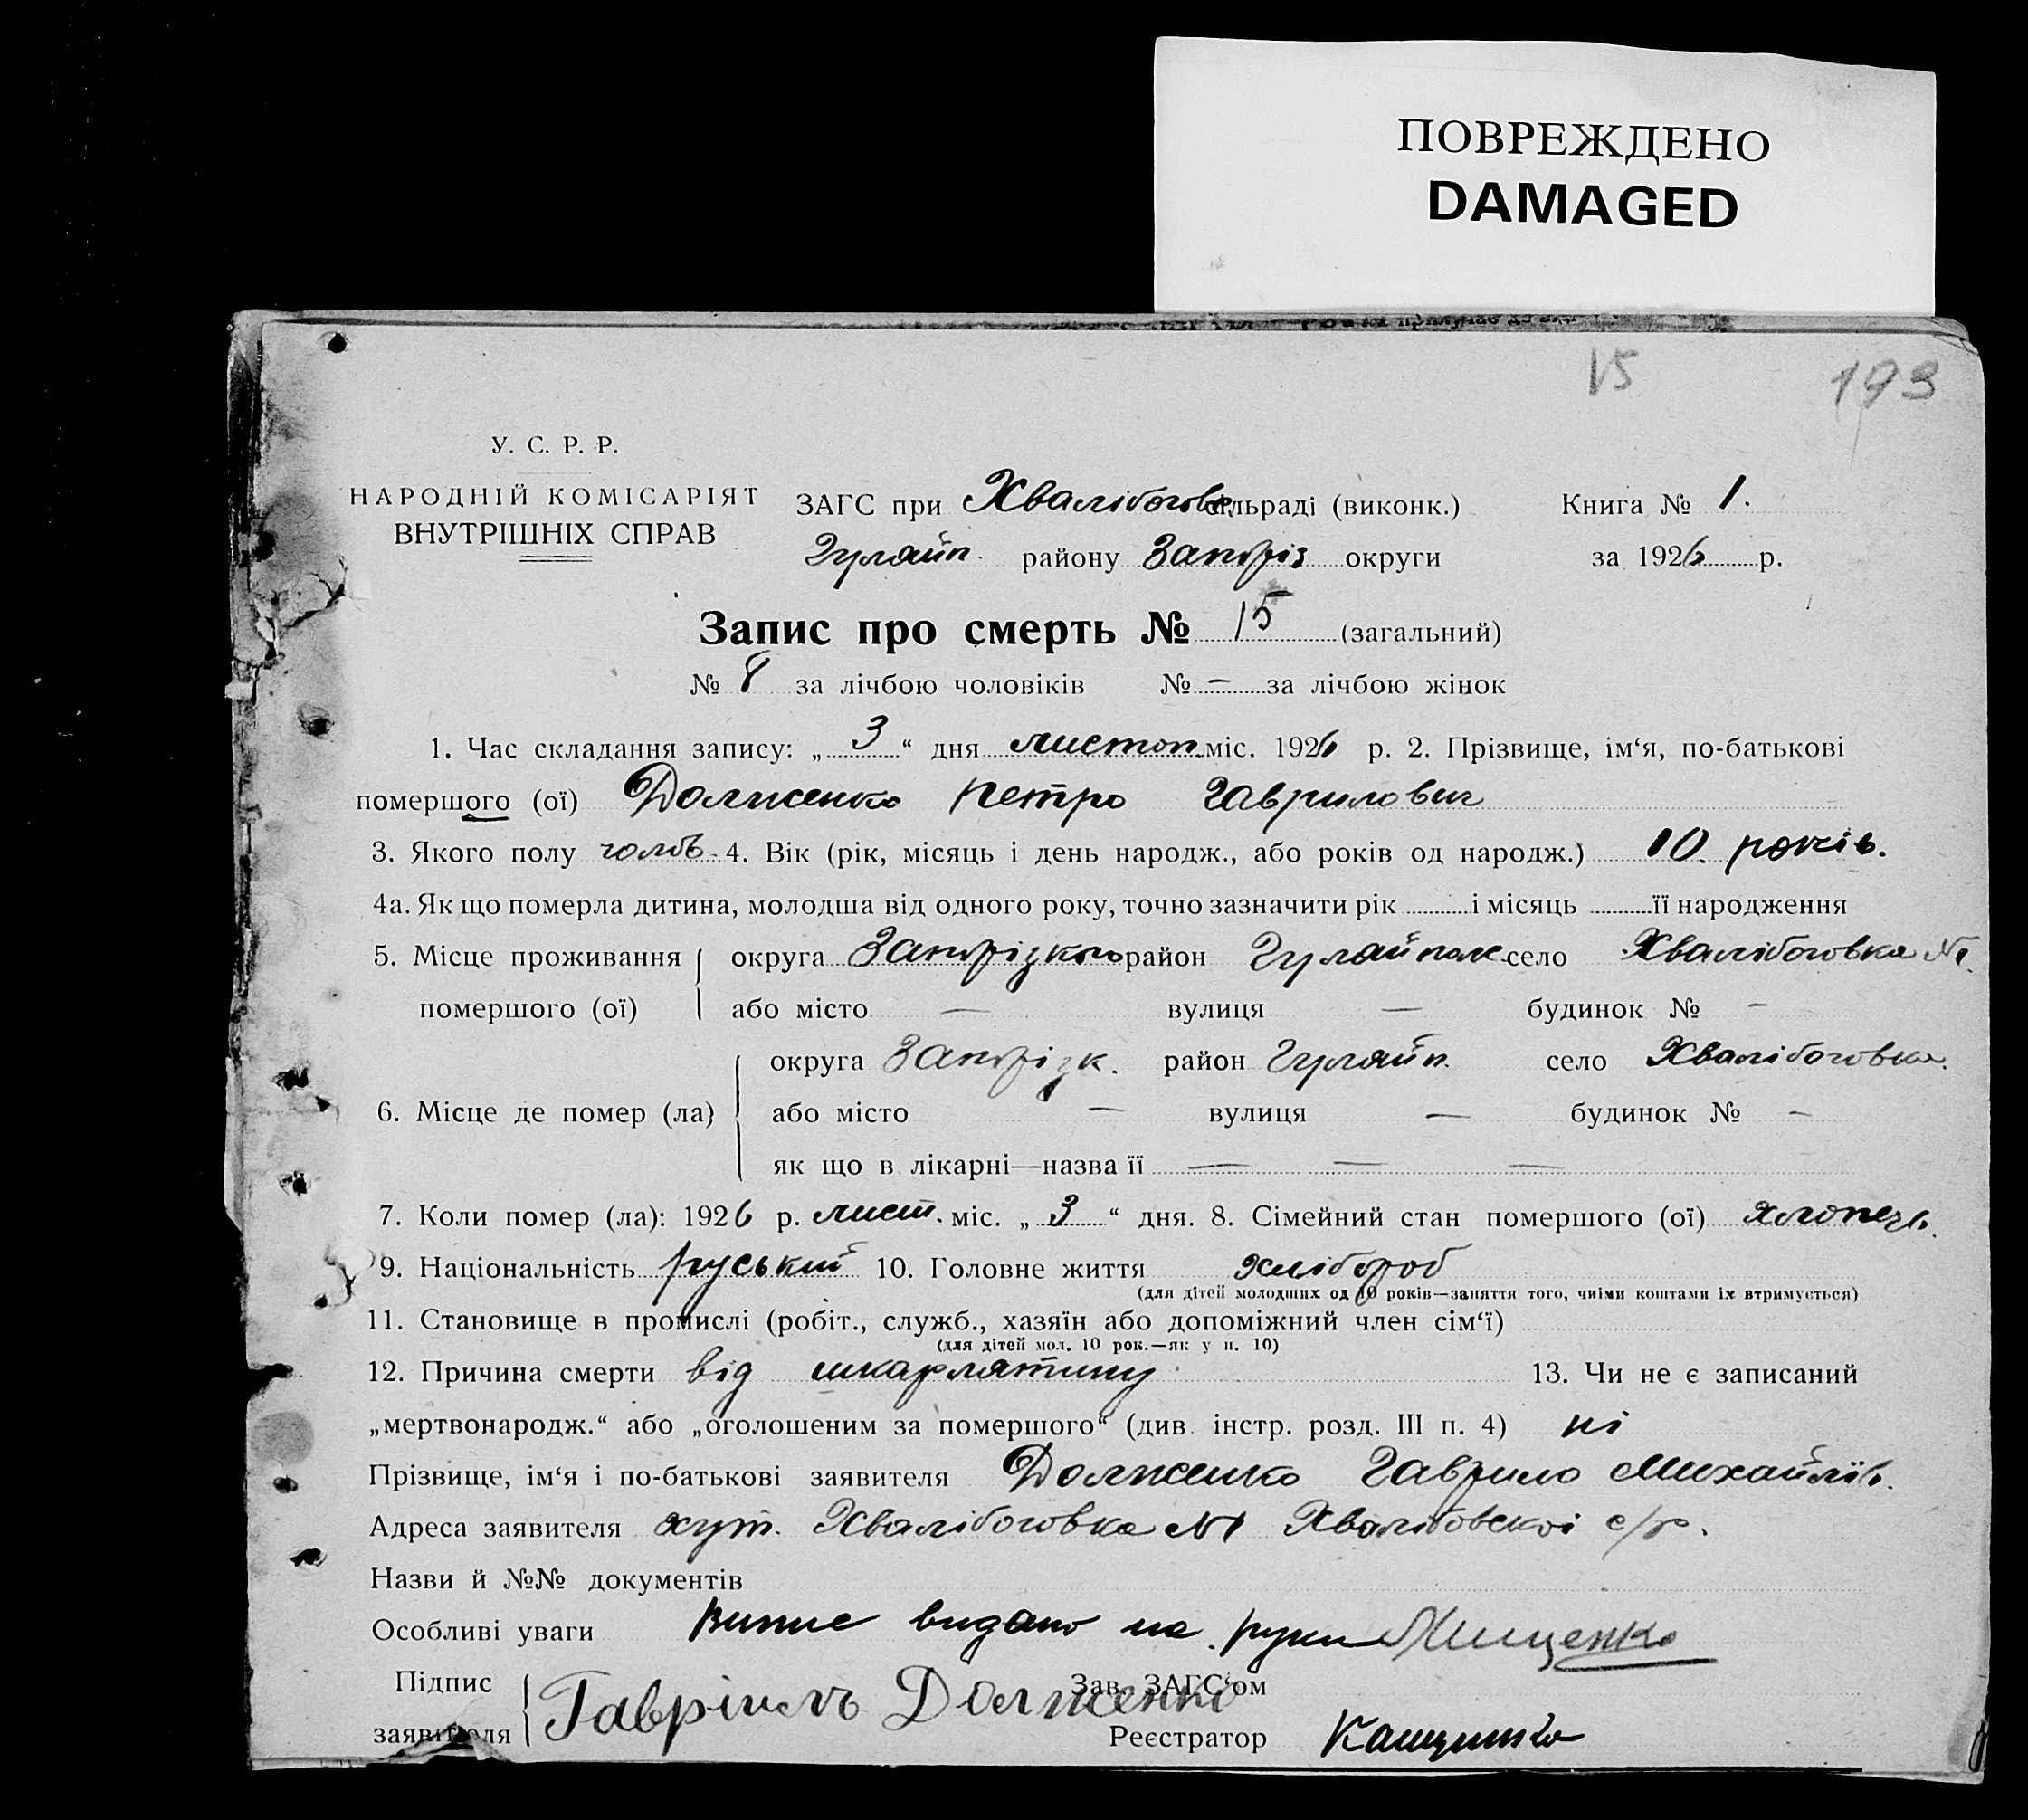 ПОВРЕЖДЕНО
DAMAGED
15 193
У. С. Р. Р.
НАРОДНІЙ КОМІСАРІЯТ
ВНУТРІШНІХ СПРАВ
ЗАГС при Хвалібогов. сільраді (виконк.) Книга № 1.
Гуляйп. району Запоріз округи за 1926 р.
Запис про смерть № 15 (загальний)
№ 8 за лічбою чоловіків № — за лічбою жінок
1. Час складання запису: „ 3 “ дня листоп. міс. 1926 р. 2. Прізвище, ім‘я, по-батькові
помершого (ої) Долженко Петро Гаврилович
3. Якого полу чолов. 4. Вік (рік, місяць і день народж., або років од народж.) 10. років.
4а. Як що померла дитина, молодша від одного року, точно зазначити рік і місяць її народження
5. Місце проживання округа Запорізького район Гуляйполе село Хвалібоговка №1.
помершого (ої) або місто — вулиця — будинок № -
округа Запорізк. район Гуляйп. село Хвалібоговка.
6. Місце де помер (ла) або місто — вулиця — будинок № -
як що в лікарні—назва її — — —
7. Коли помер (ла): 1926 р. лист. міс. „ 3 “ дня. 8. Сімейний стан помершого (ої) хлопець.
9. Національність руський 10. Головне життя хлібороб
(для дітей молодших од 10 років—заняття того, чиїми коштами їх втримується)
11. Становище в промислі (робіт., служб., хазяїн або допоміжний член сім‘ї)
(для дітей мол. 10 рок.—як у п. 10)
12. Причина смерти від шкарлятину 13. Чи не є записаний
„мертвонародж.“ або „оголошеним за помершого“ (див. інстр. розд. III п. 4) ні
Прізвище, ім‘я і по-батькові заявителя Долженко Гаврило Михайлів.
Адреса заявителя хут. Хвалібоговка №1 Хвалібовскоі с/р.
Назви й №№ документів
Особливі уваги Випис видано на руки Мищенко
Підпис Зав. ЗАГС‘ом
заявителя Гавріилъ Долженко
Реєстратор